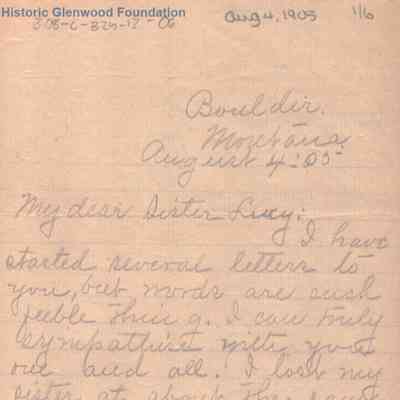 Historic Glenwood Foundation
Aug 4, 1905 1/6
305-C-B25-12-06
Bouldir.
Montana.
August 4: 05
My dear Sister Lucy:
I have
started several letters to
you, but words are such
feeble thing. I can truly
sympathise with you
one and all. I lost my
sister at about the same